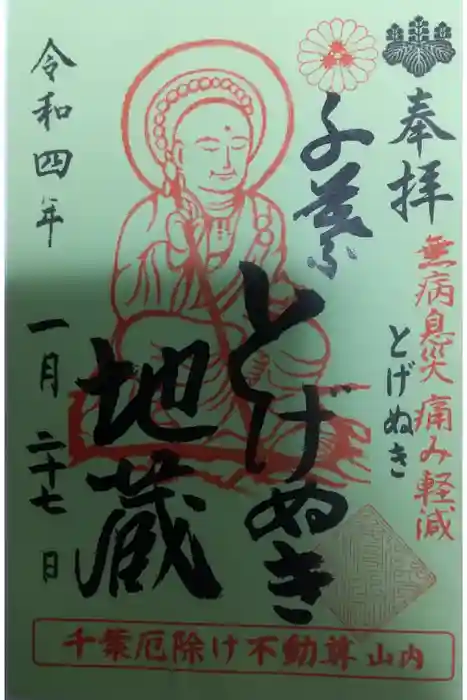 奉拝
無病息災 痛み軽減
とげぬき
千葉
とげぬき
地蔵
令和四年
一月二十七日
千葉厄除け不動尊 山内